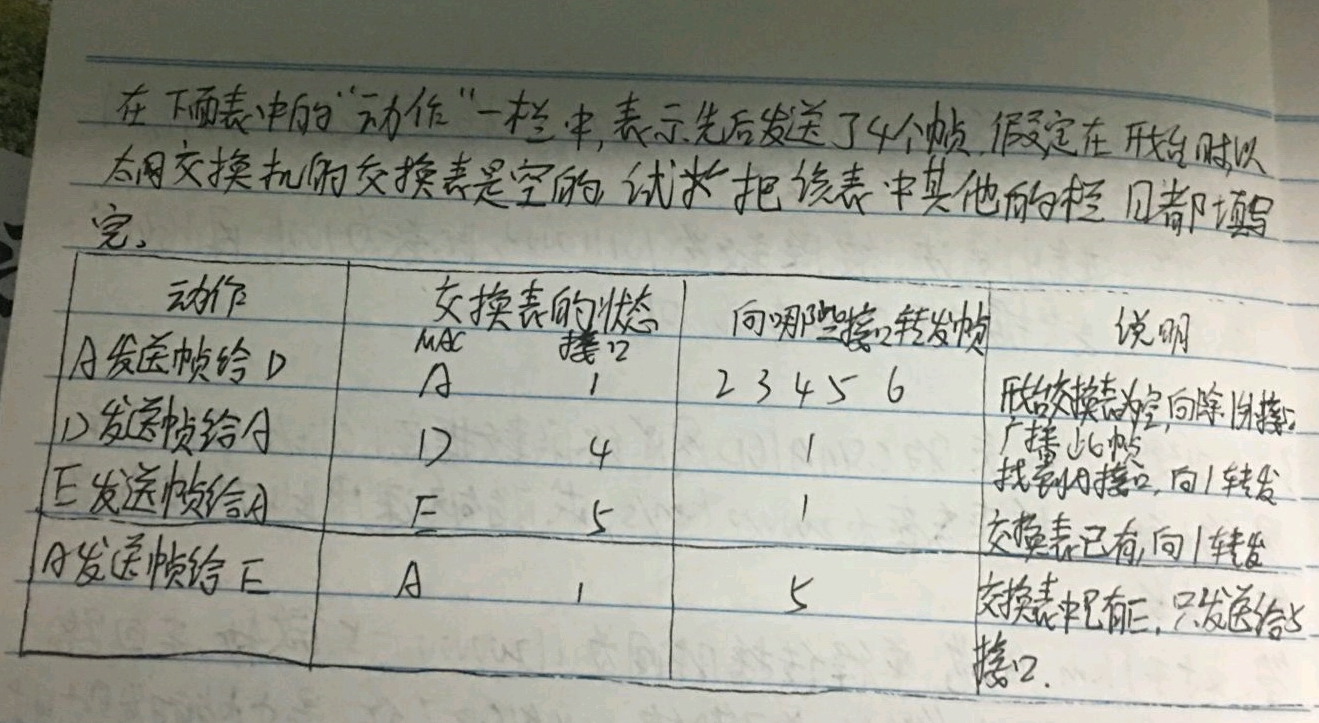 在下面表中的“动作”一栏中,表示先后发送了4个帧.假定在开始时,以
太网交换机的交换表是空的,试把该表中其他的栏目都填写
完。
动作 交换表的状态 向哪些接口转发帧 说明
MAC 接口
A发送帧给D A 1 2 3 4 5 6 开始交换表为空,向除1外接口
广播此帧
D发送帧给A D 4 1 找到A接口,向1转发
E发送帧给A E 5 1 交换表已有,向1转发
A发送帧给E A 1 5 交换表中已有E,只发送给5
接口.